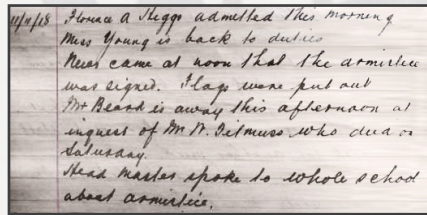 11/11/18 Florence A Higgs admitted this morning
Miss Young is back to duties
News came at noon that the armistice
was signed. Flags were put out
Mr Beard is away this afternoon at
inquest of Mr W. Titmuss who died on
Saturday.
Head Master spoke to whole school
about armistice.